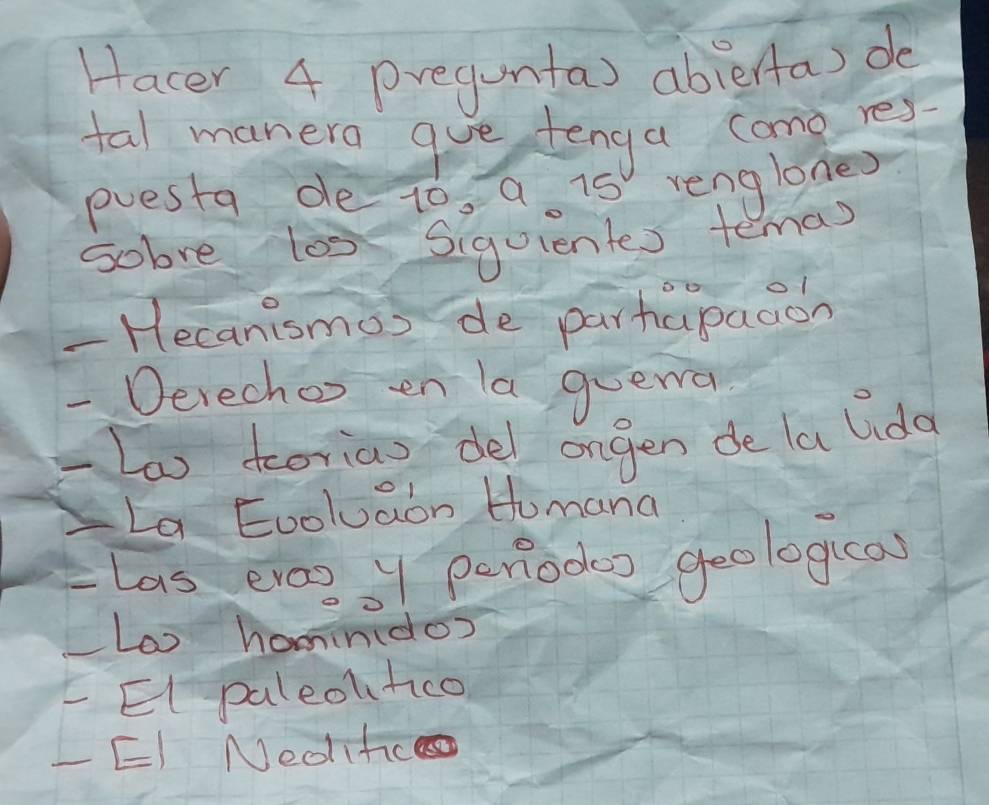 Hacer 4 preguntas abiertas de
tal manera que tenga como res-
puesta de 10. a 15 renglones
sobre los Siguientes temas
- Mecanismos de participación
- Derechos en la guerra.
- Las teorias del origen de la vida
- La Evolución Humana
- Las eras y periodos geologicas
- Los hominidos
- El paleolitico
- El Neolitico